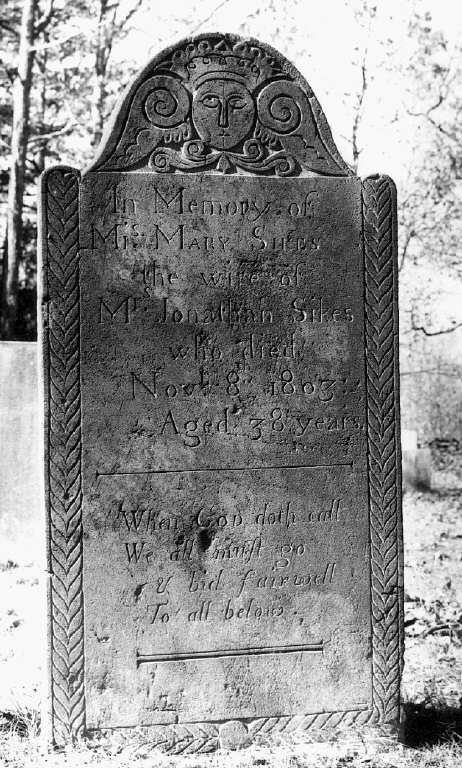 In Memory of
Mrs. MARY SIKES
the wife of
Mr. Jonathan Sikes
who died
Novr. 8th. 1803.
Aged 38 years.
When GOD doth call
We all muſt go
& bid fairwell
To all below.